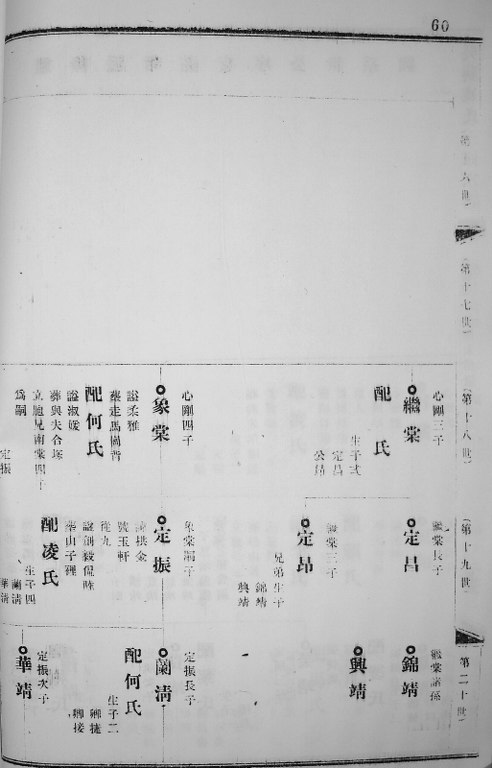 60
第十六世
第十七世
第十八世
心剛三子
繼棠
配 氏
生子弍
定昌
定昂
心剛四子
象棠
諡柔雅
葬走馬崗背
配何氏
諡淑媛
葬與夫合塚
立胞兄南棠四子
爲嗣
定振
第十九世
繼棠長子
定昌
繼棠二子
定昂
兄弟生子
錦靖
興靖
象棠嗣子
定振
諱拱金
號玉軒
從九
諡創毅侃睦
葬山子裡
配凌氏
生子四
蘭淸
華淸
第二十世
繼棠諸孫
錦靖
興靖
定振長子
蘭淸
配何氏
生子二
定振次子
華靖